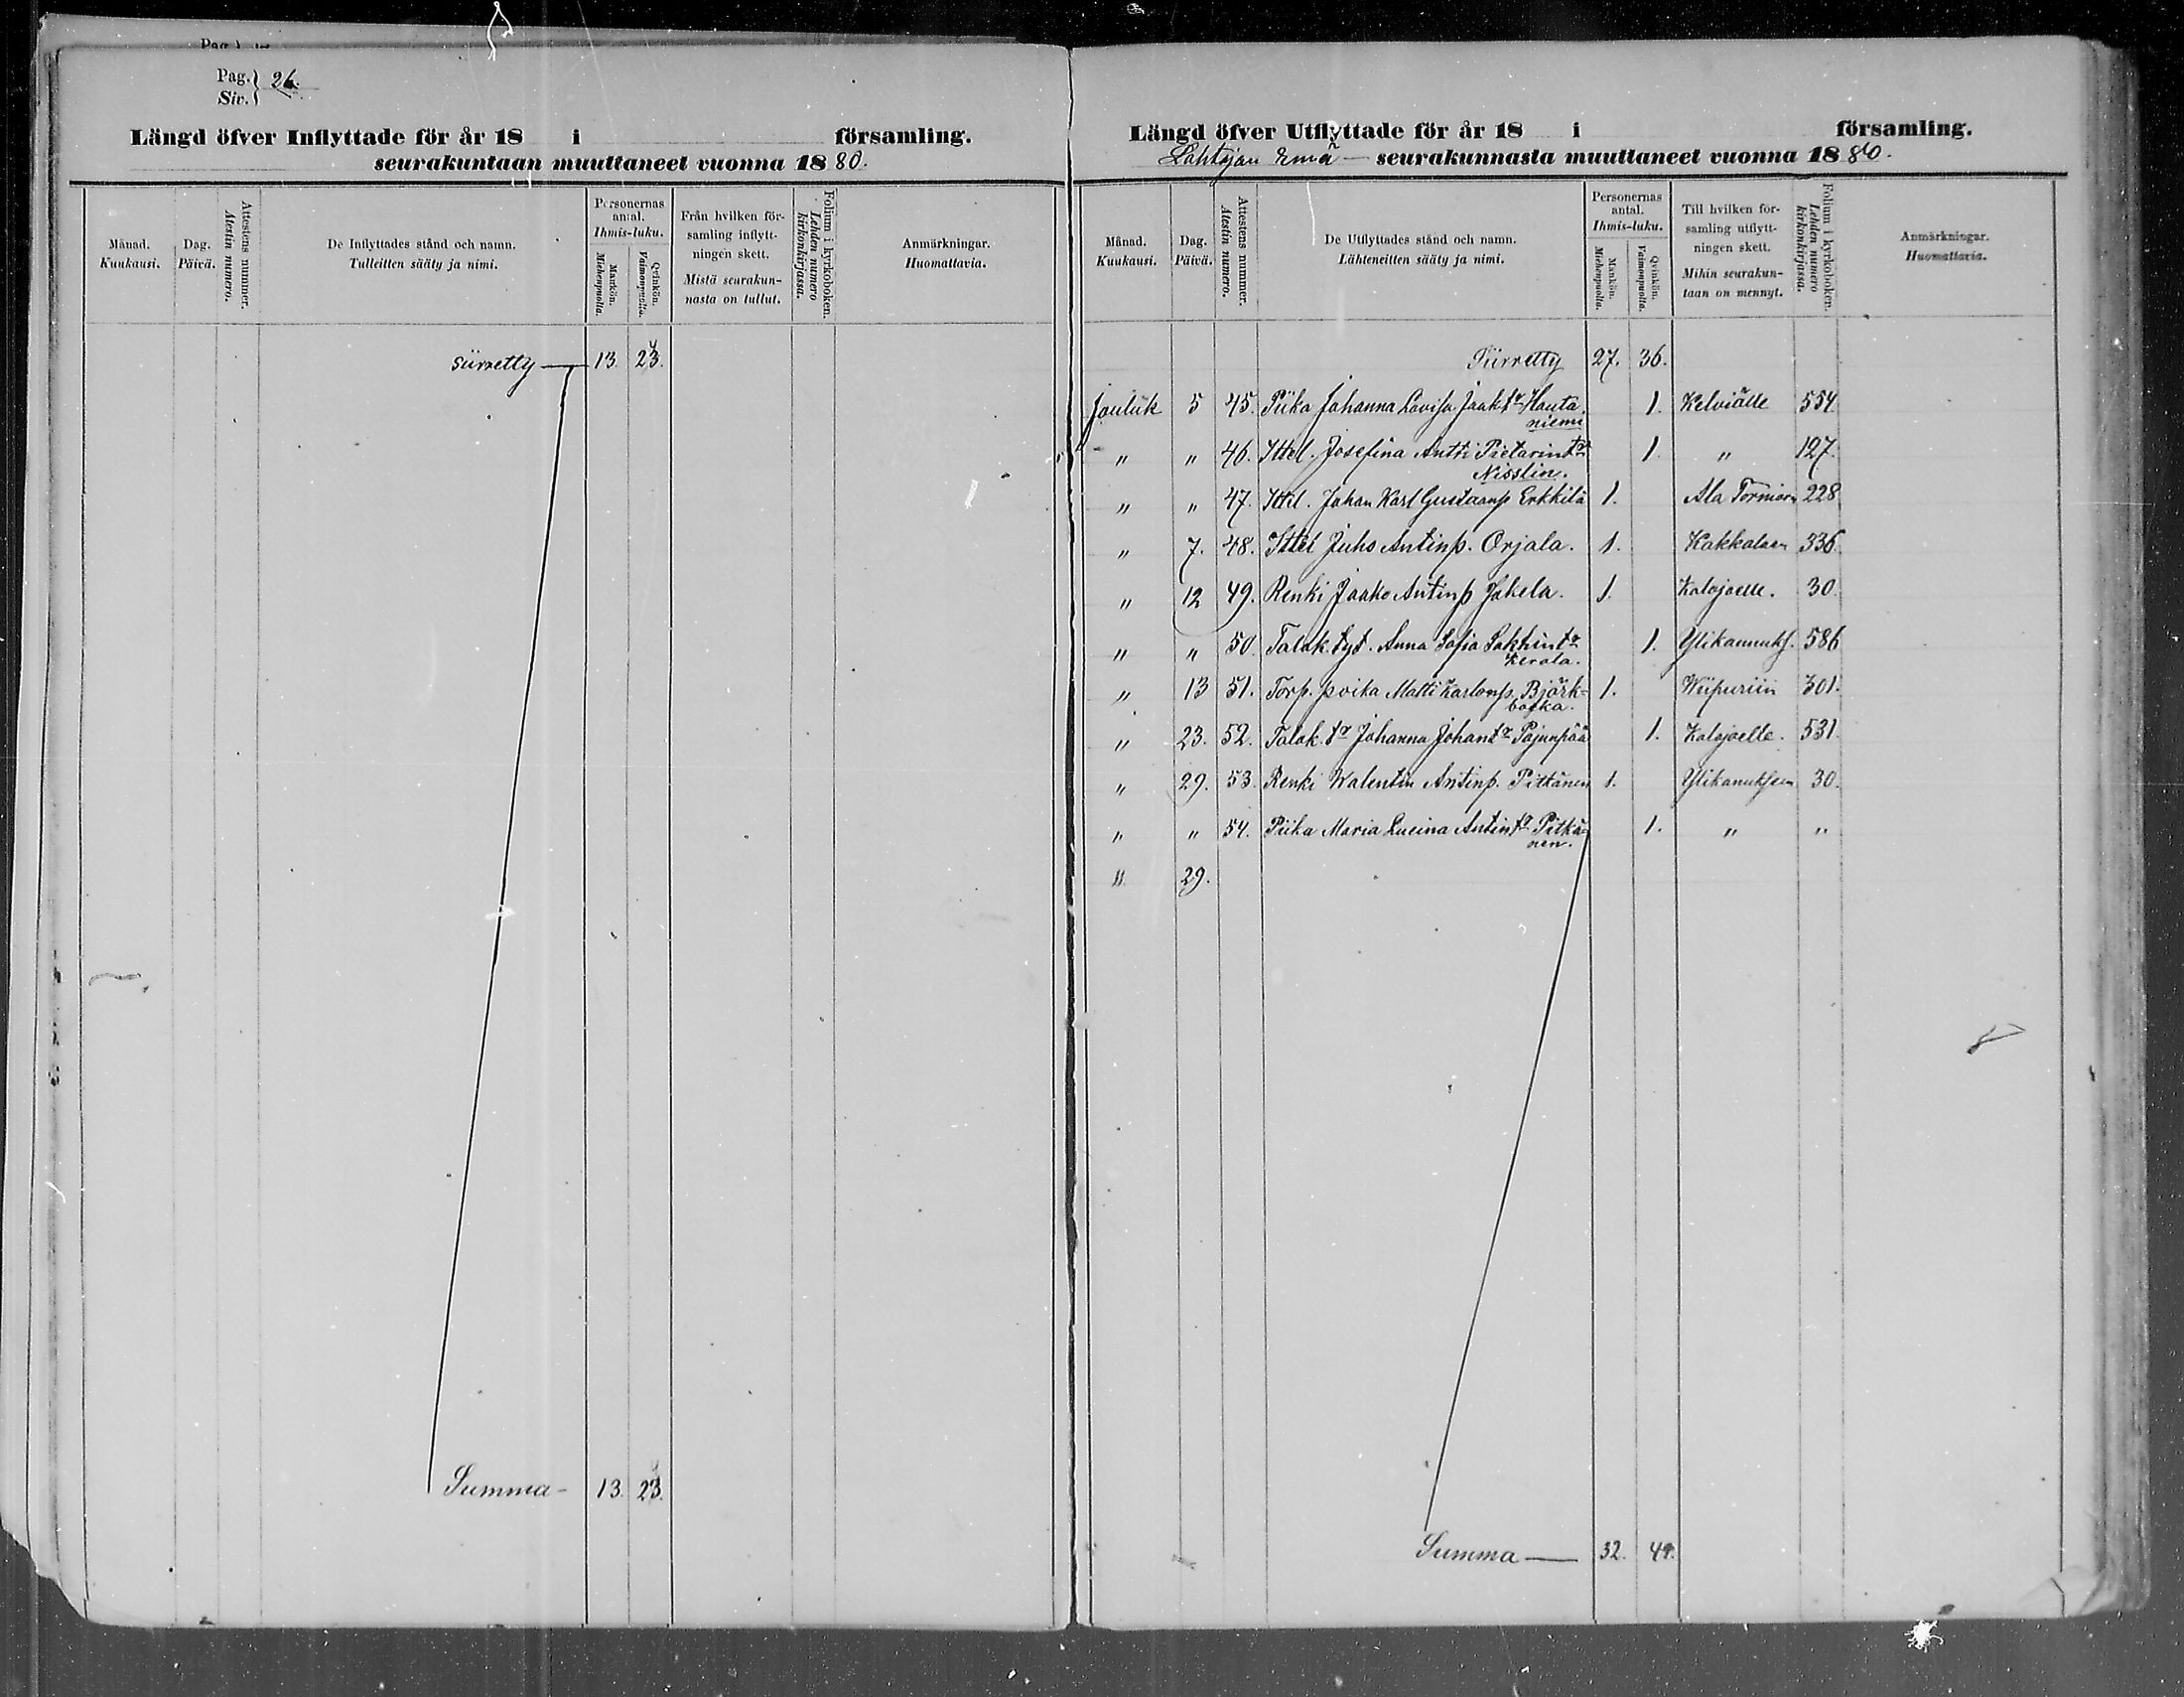 Pag. } 26.
Siv. }
Längd öfver Inflyttade för år 18 i församling.
seurakuntaan muuttaneet vuonna 1880.
Månad. Kuukausi.
Dag. Päivä.
Attestens nummer. Atestin numero.
De Inflyttades stånd och namn. Tulleitten sääty ja nimi.
Personernas antal. Ihmis-luku.
Mankön. Miehenpuolta.
Qvinkön. Vaimonpuolta.
Från hvilken församling inflyttningen skett. Mistä seurakunnasta on tullut.
Folium i kyrkoboken. Lehden numero kirkonkirjassa.
Anmärkningar. Huomattavia.
siirretty — 13. 23.
Summa - 13. 23.
Längd öfver Utflyttade för år 18 i församling.
Lohtajan Emä — seurakunnasta muuttaneet vuonna 1880.
Månad. Kuukausi.
Dag. Päivä.
Attestens nummer. Atestin numero.
De Utflyttades stånd och namn. Lähteneitten sääty ja nimi.
Personernas antal. Ihmis-luku.
Mankön. Miehenpuolta.
Qvinkön. Vaimonpuolta.
Till hvilken församling utflyttningen skett. Mihin seurakuntaan on mennyt.
Folium i kyrkoboken. Lehden numero kirkonkirjassa.
Anmärkningar. Huomattavia.
Siirretty 27. 36.
Jouluk 5 45. Piika Johanna Lovisa Jaakta Hauta 1. Kelviälle 554
niemi
" " 46. Ittel. Josefina Antti Pietarinta 1. " 127.
Nisslin.
" " 47. Ittel. Johan Karl Gustaanp Erkkilä 1. Ala Tornion 228
" 7. 48. Ittel Juho Antinp. Orjala. 1. Kokkolaan 336.
" 12 49. Renki Jaako Antinp Jokela. 1. Kalajoelle. 30.
" " 50. Talok. tyt. Anna Sofia 1. Ylikannuks. 586
Kerola.
" 13 51. Torp. poika Matti Karlonp. Björk- 1. Wiipuriin 301.
backa.
" 23. 52. Talok. tr Johanna Johanta Pajunpää 1. Kalajoelle. 531.
" 29. 53. Renki Walentin Antinp. Pitkänen 1. Ylikanuksen 30.
" " 54. Piika Maria Lucina Antinta Pitkä- 1. " "
nen.
" 29.
Summa — 32. 41.